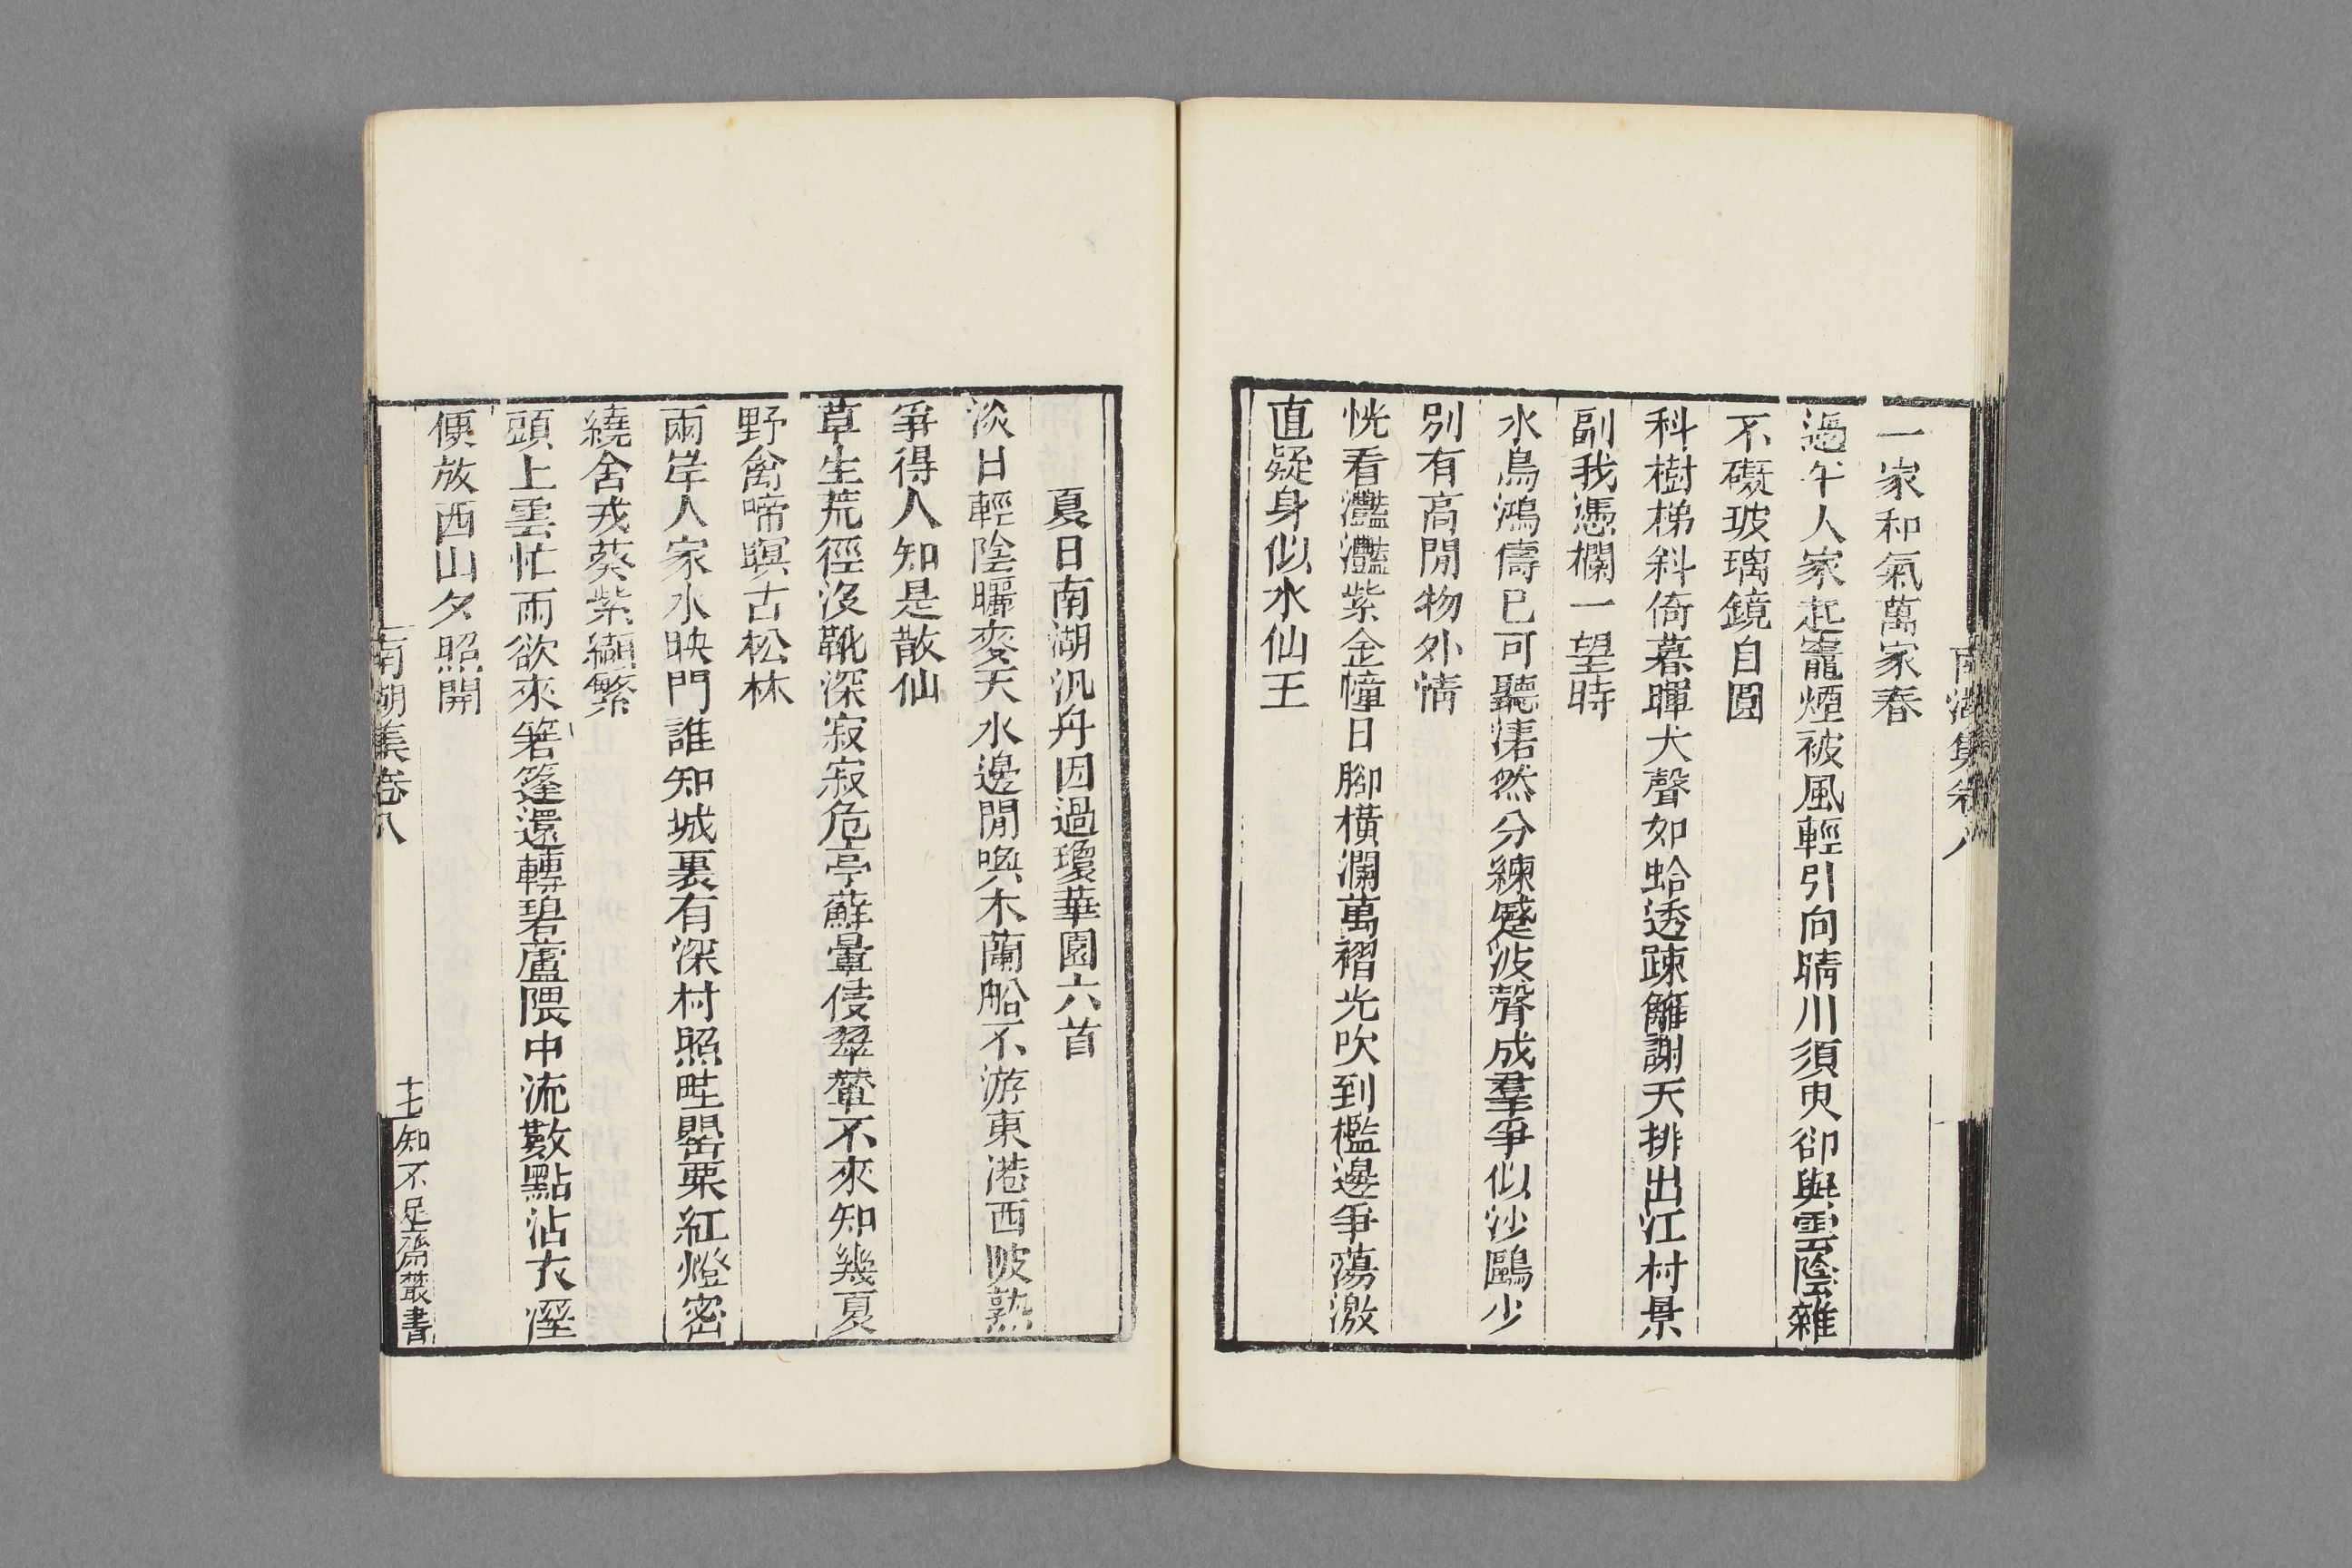 南湖集卷八
一家和氣萬家春
過午人家起竈煙被風輕引向晴川須臾卻與雲陰雜
不礙玻璃鏡自圓
科樹梯斜倚暮暉犬聲如蛤透疎籬謝天排出江村景
副我憑欄一望時
水鳥鴻儔已可聽湱然分練蹙波聲成羣爭似沙鷗少
別有高閒物外情
恍看灧灧紫金幢日腳橫瀾萬褶光吹到檻邊爭蕩激
直疑身似水仙王
夏日南湖汎舟因過瓊華園六首
淡日輕陰曬麥天水邊閒喚木蘭船不游東港西陂熟
爭得人知是散仙
草生荒徑沒靴深寂寂危亭蘚暈侵翠輦不來知幾夏
野禽啼瞑古松林
兩岸人家水映門誰知城裏有深村照畦罌粟紅燈密
繞舍戎葵紫纈繁
頭上雲忙雨欲來箬篷還轉碧蘆隈中流數點沾衣溼
便放西山夕照開
南湖集卷八
十七
知不足齋叢書